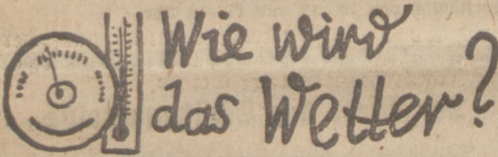 Wie wird
das Wetter?